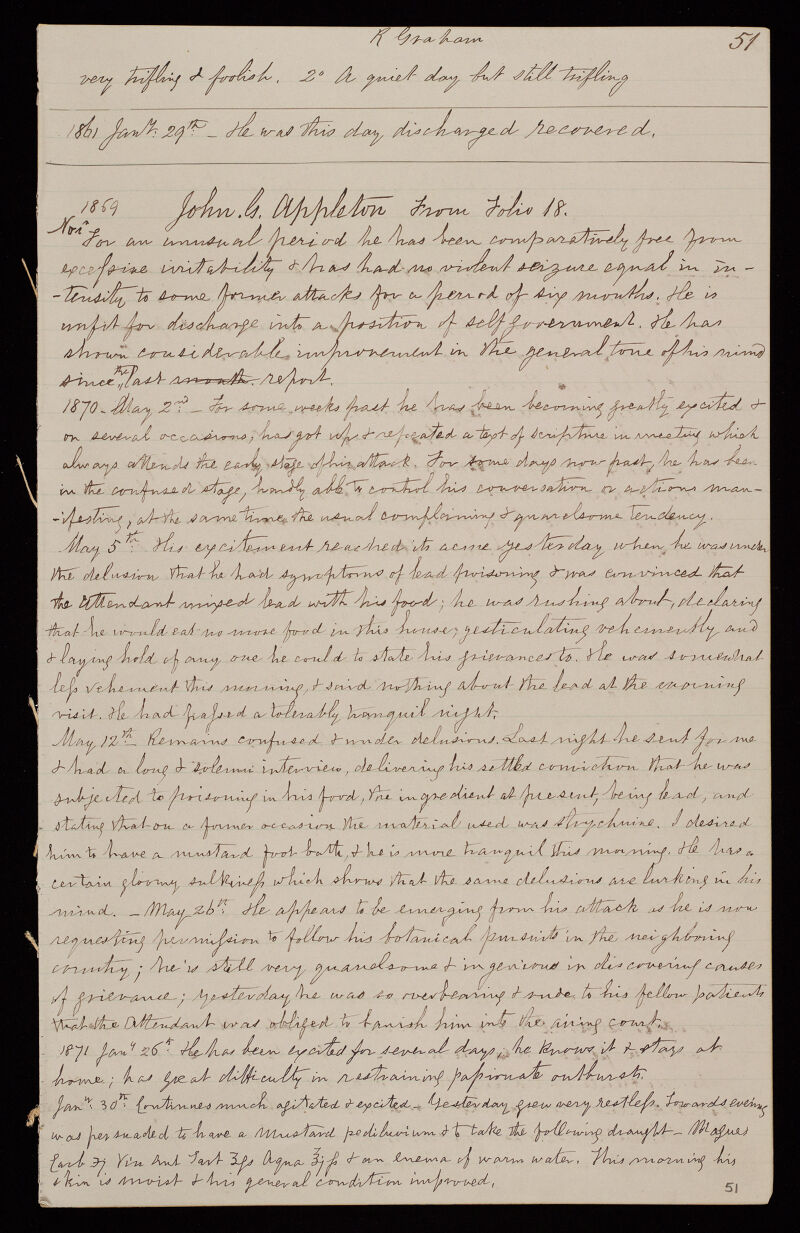 R Graham
51
very trifling & foolish. 2° A quiet day but still trifling
1861 Jany. 29th – He was this day discharged recovered.
1869 John. G. Appleton From Folio 18.
Nov.
For an unusual period he has been comparatively free from
excessive irritability & has had no violent seizure equal in in-
-tensity to some former attacks for a period of six months. He is
unfit for discharge into a position of self government. He has
shown considerable improvement in the general tone of his mind
since the last month. report.
1870 – May 2nd – For some weeks past he has been becoming greatly excited &
on several occasions, has got up & repeated a text of scripture in meeting which
always attends the early stage of his attack. For some days now past, he has been
in the confused stage, hardly able to control his conversation or actions man-
-ifesting, at the same time, the usual complaining & quarrelsome tendency.
May 5th. His excitement reached its acme yesterday when he was under
the delusion that he had symptoms of lead poisoning & was convinced that
the Attendant mixed lead with his food; he was rushing about, declaring
that he would eat no more food in this house, gesticulating vehemently and
& laying hold of any one he could to state his grievances to. He was somewhat
less vehement this morning, & said nothing about the lead at the morning
visit. He had passed a tolerably tranquil night.
May 12th – Remains confused & under delusions. Last night he sent for me
& had a long & solemn interview, delivering his settled conviction that he was
subjected to poisoning in his food, the ingredient at present, being lead, and
stating that on a former occasion the material used was strychnine. I desired
him to have a mustard foot bath, & he is more tranquil this morning. He has a
certain gloomy sulkiness which shows that the same delusions are lurking in his
mind. – May 26th. He appears to be emerging from his attack as he is now
requesting permission to follow his botanical pursuits in the neighboring
country; he is still very quarrelsome & ingenious in discovering causes
of grievance; yesterday he was so overbearing & rude to his fellow patients
that the Attendant was obliged to banish him into the airing court.
1871 Jany 26th. He has been excited for several days, he knows it & stays at
home; has great difficulty in restraining passionate outbursts.
Jany. 30th. Continues much agitated & excited – Yesterday grew very restless. Towards evening
was persuaded to have a mustard pediluvium & to take the following draught – Magnes
Carb Vin Ant Tart ʒfs Aqua & an enema of warm water. This morning his
skin is moist & his general condition improved.
51